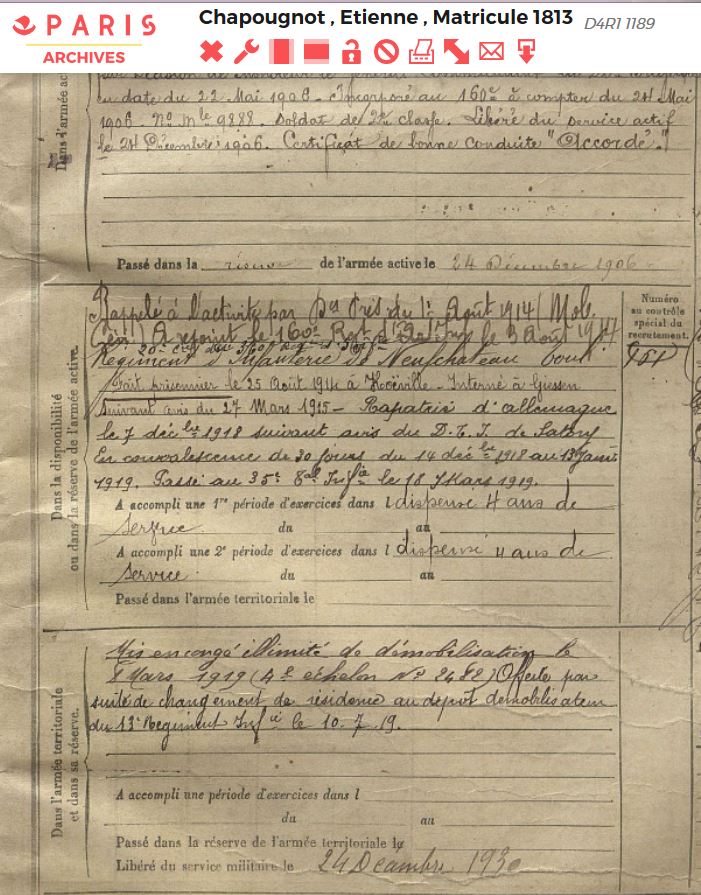 PARIS
ARCHIVES
Chapougnot , Etienne , Matricule 1813
D4R1 1189
Dans l'armée ac
en date du 22 Mai 1906 - Incorporé au 160e à compter du 24 Mai
1906. No Mle 9888. Soldat de 2e classe. Libéré du service actif
le 24 Décembre 1906. Certificat de bonne conduite "Accordé."
Passé dans la réserve de l'armée active le 24 Décembre 1906
Dans la disponibilité
ou dans la réserve de l'armée active.
Numéro
au contrôle
spécial du
recrutement.
Rappelé à l'activité par du 1er Août 1914 (Mob.
Gén) A rejoint le 160e Rgt d' le 3 Août 1914
Régiment d'Infanterie de Neufchateau
Fait prisonnier le 25 Août 1914 à Hoéville - Interné à Giessen
Suivant avis du 27 Mars 1915 - Rapatrié d'allemagne
le 7 déc bre 1918 suivant avis du D. T. I. de
En convalescence de 30 jours du 14 déc bre 1918 au 13 Janv
1919. Passé au 35e Inf ie le 18 Mars 1919.
A accompli une 1re période d'exercices dans l dispensé 4 ans de
service du au
A accompli une 2e période d'exercices dans l dispensé 4 ans de
Service du au
Passé dans l'armée territoriale le
Dans l'armée territoriale
et dans sa réserve.
Mis en congé illimité de démobilisation le
8 Mars 1919 (4e échelon No 2482) par
suite de changement de résidence au dépot démobilisateur
du 13e Regiment Inf ie le 10.7.19.
A accompli une période d'exercices dans l
du au
Passé dans la réserve de l'armée territoriale le
Libéré du service militaire le 24 Dcembre 193